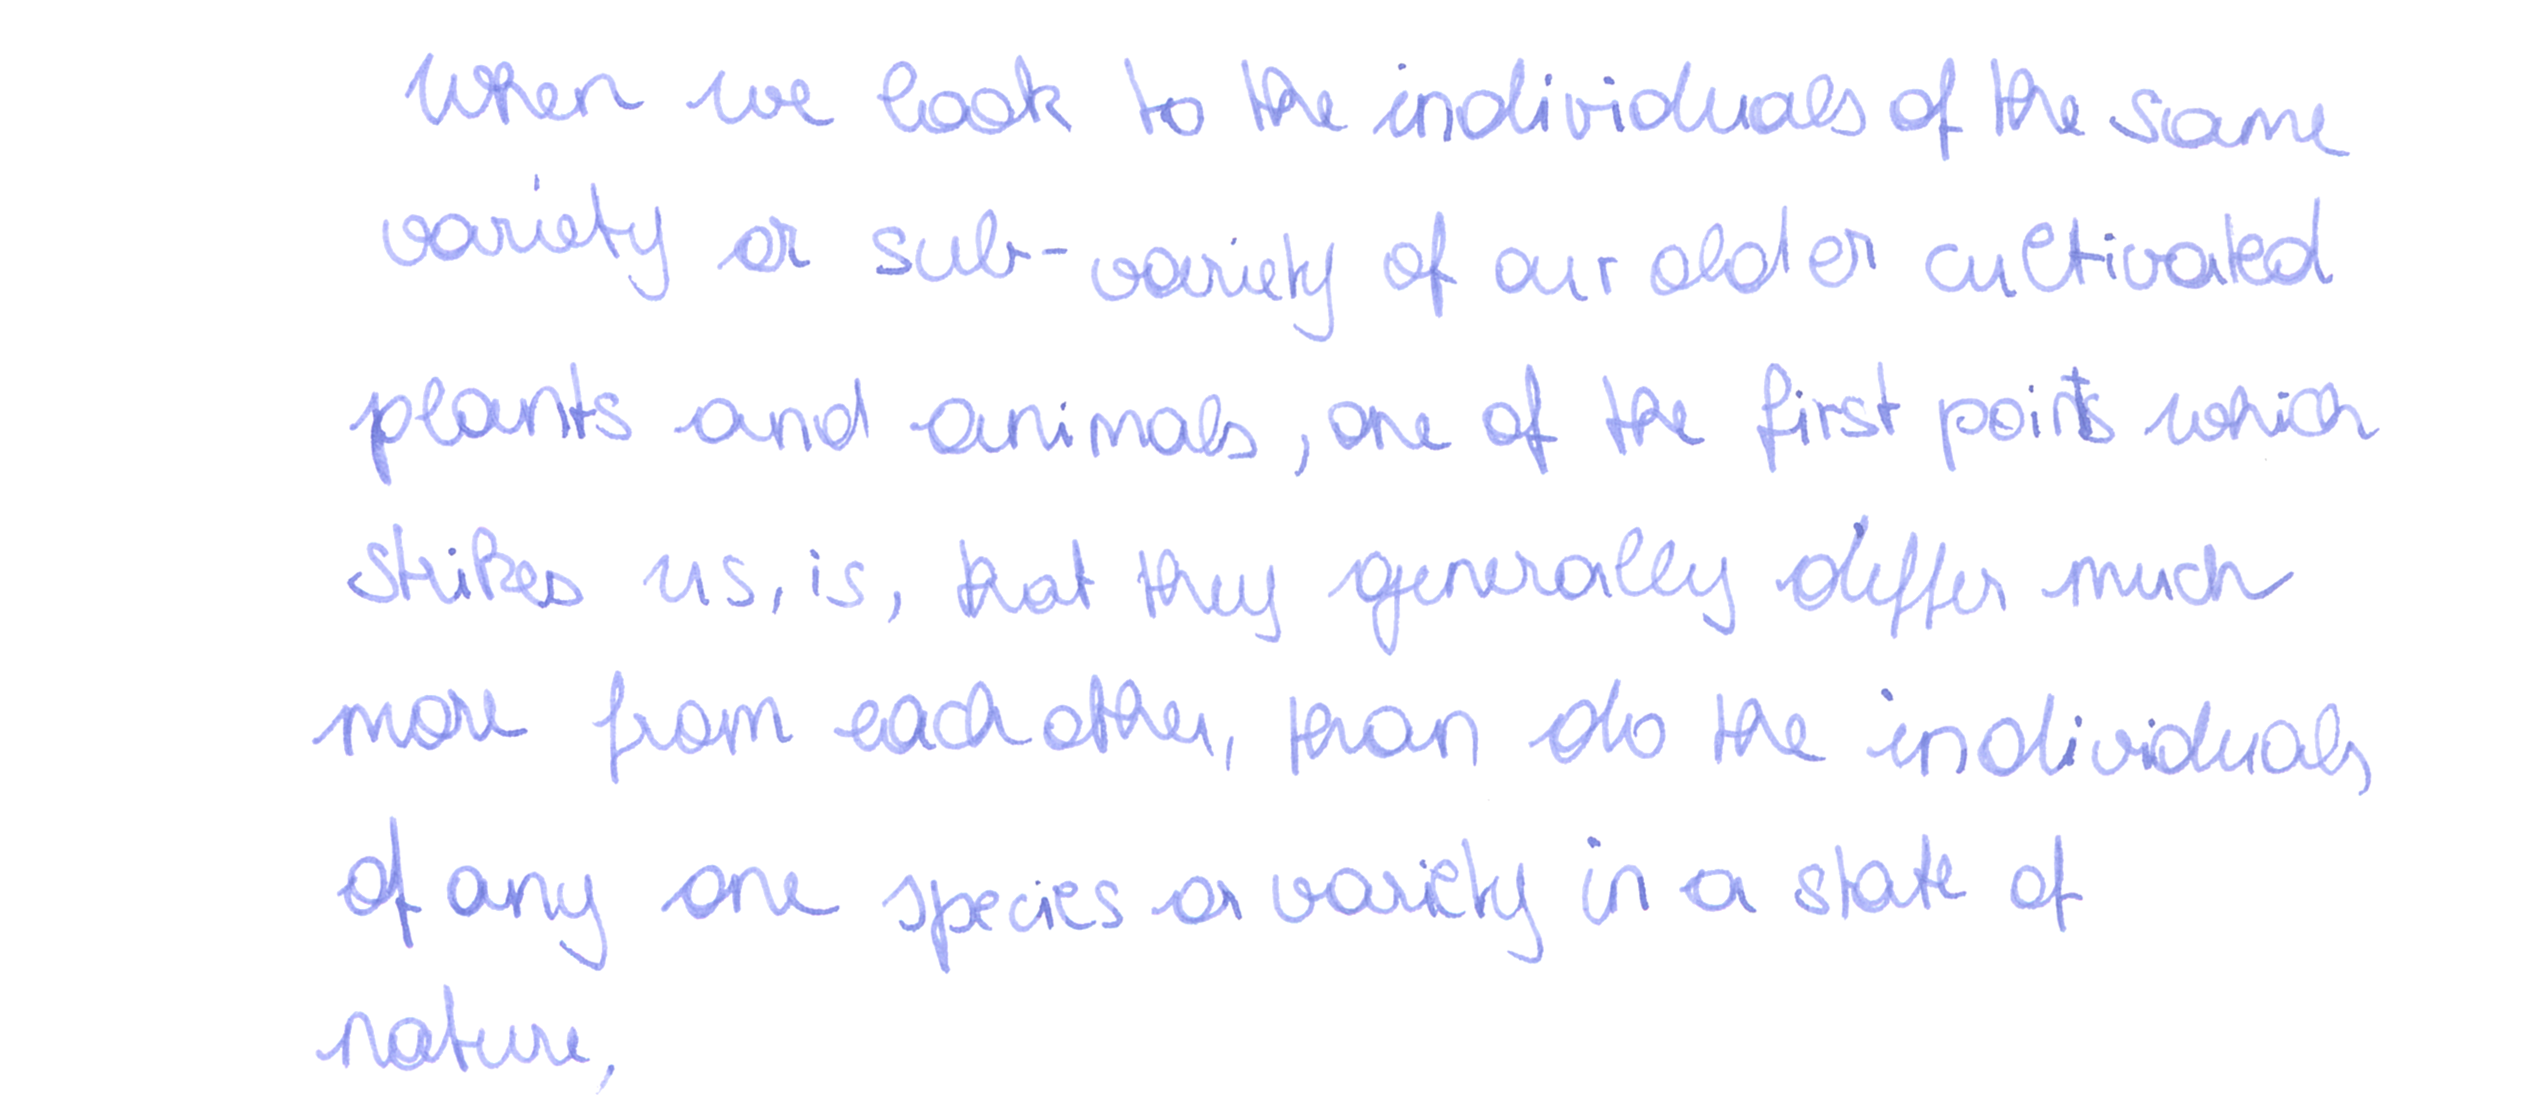 When we look to the individuals of the same
variety or sub-variety of our older cultivated
plants and animals, one of the first points which
strikes us, is, that they generally differ much
more from each other, than do the individuals
of any one species or variety in a state of
nature,